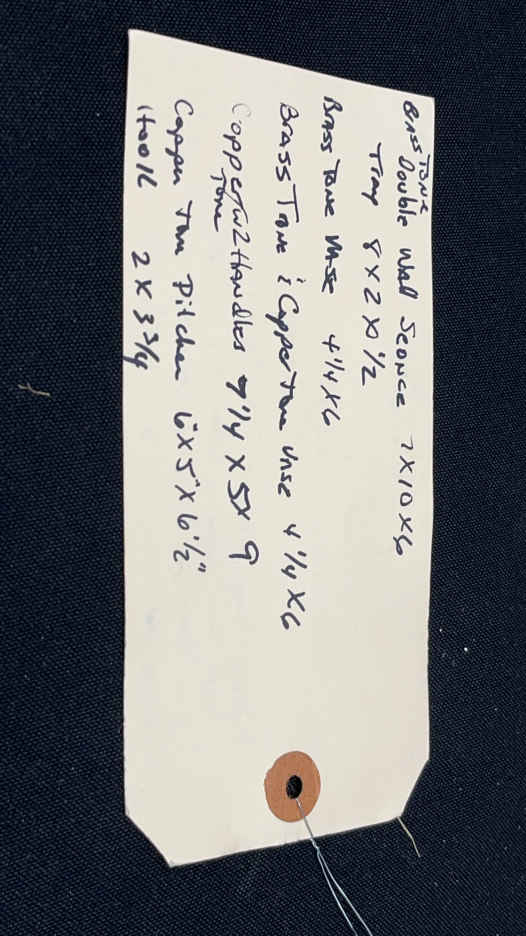 Brass Tone
Double Wall Sconce 7x10x6
Tray 8x2x1/2
Brass Tone Vase 4 1/4 x6
Brass Tone & Copper Tone Vase 4 1/4 x6
Copper Tone w/2 Handles 9 1/4 x 5 x 9
Copper Tone Pitcher 6"x5"x6 1/2"
2 x 3 3/4